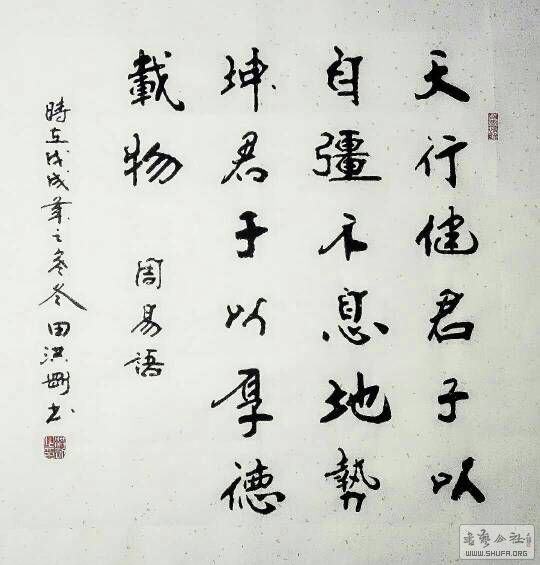 天行健君子以
自彊不息地勢
坤君子以厚德
載物
周易語
時在戊戌年之冬田洪剛书
WWW.SHUFA.ORG